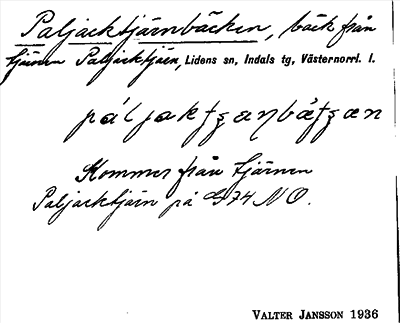 Paljacktjärnbäcken, bäck från
tjärnen Paljacktjärn, Lidens sn, Indals tg, Västernorrl. l.
Kommer från tjärnen
Paljacktjärn på G74 NO.
VALTER JANSSON 1936